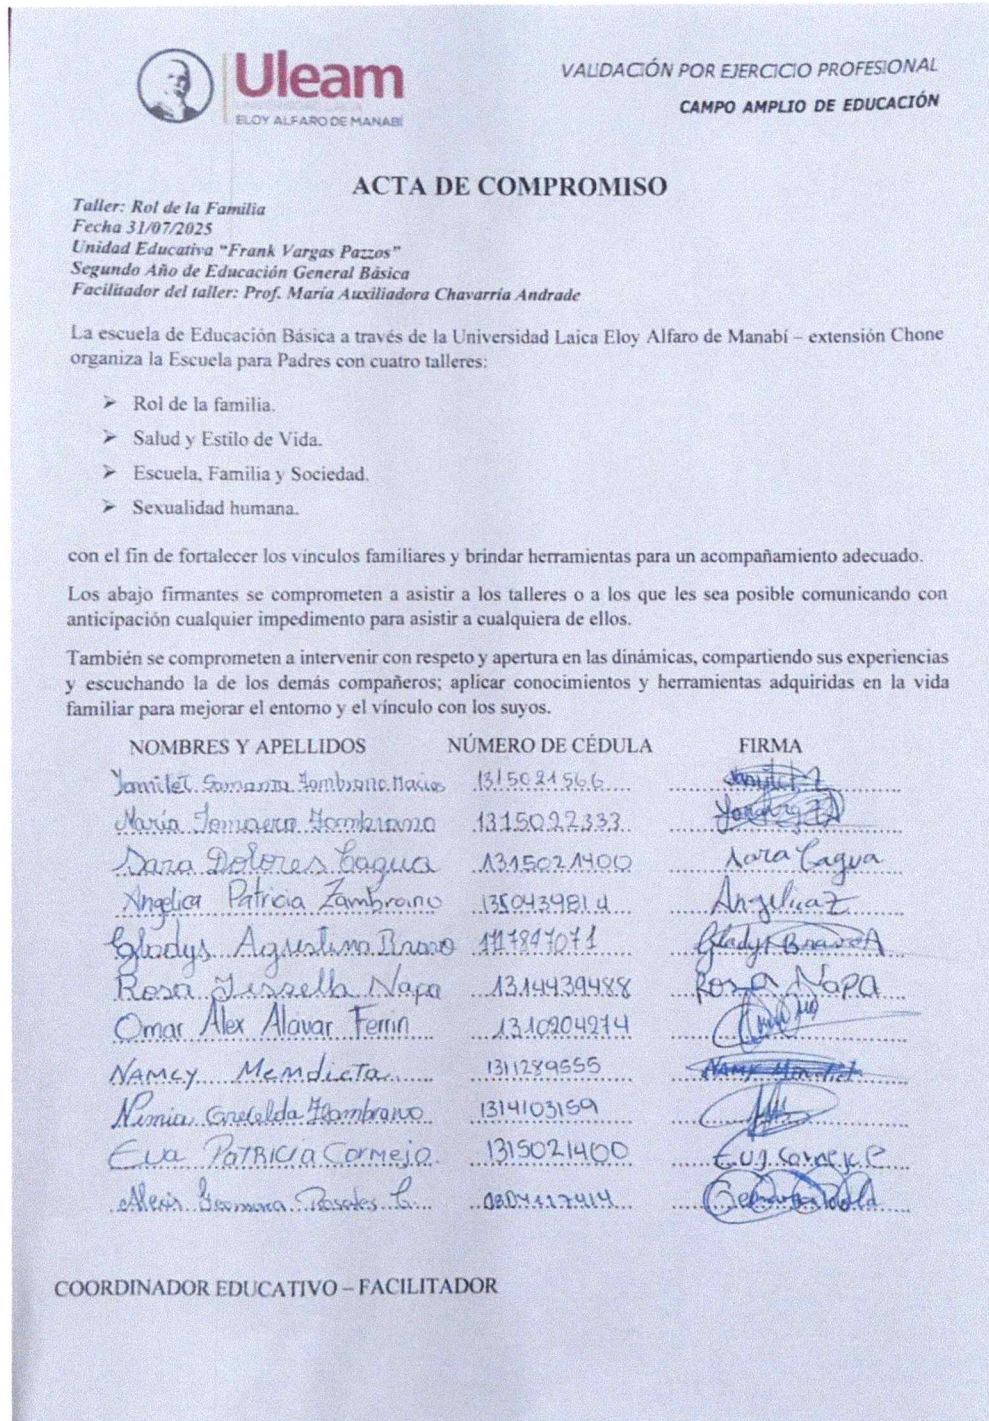 Uleam
UNIVERSIDAD LAICA
ELOY ALFARO DE MANABÍ
VALIDACIÓN POR EJERCICIO PROFESIONAL
CAMPO AMPLIO DE EDUCACIÓN
ACTA DE COMPROMISO
Taller: Rol de la Familia
Fecha 31/07/2025
Unidad Educativa "Frank Vargas Pazzos"
Segundo Año de Educación General Básica
Facilitador del taller: Prof. María Auxiliadora Chavarría Andrade
La escuela de Educación Básica a través de la Universidad Laica Eloy Alfaro de Manabí – extensión Chone
organiza la Escuela para Padres con cuatro talleres:
➢ Rol de la familia.
➢ Salud y Estilo de Vida.
➢ Escuela, Familia y Sociedad.
➢ Sexualidad humana.
con el fin de fortalecer los vínculos familiares y brindar herramientas para un acompañamiento adecuado.
Los abajo firmantes se comprometen a asistir a los talleres o a los que les sea posible comunicando con
anticipación cualquier impedimento para asistir a cualquiera de ellos.
También se comprometen a intervenir con respeto y apertura en las dinámicas, compartiendo sus experiencias
y escuchando la de los demás compañeros; aplicar conocimientos y herramientas adquiridas en la vida
familiar para mejorar el entorno y el vínculo con los suyos.
NOMBRES Y APELLIDOS NÚMERO DE CÉDULA FIRMA
Yamilet Zambrano Macias 1315021566
María Zambrano 1315022333
Sara Dolores Cagua 1315021400 Sara Cagua
Angelica Patricia Zambrano 1350439814 Angelica Z
Gladys Agustina Bravo 1717847071 Gladys Bravo A
Rosa Jissella Napa 1314439488 Rosa Napa
Omar Alex Alavar Ferrin 1310204274
Namcy Memdieta 1311289555
Nimia Zambrano 1314103159
Eva Patricia Cornejo 1315021400 Eva Cornejo P
Alexis Rosales
COORDINADOR EDUCATIVO – FACILITADOR